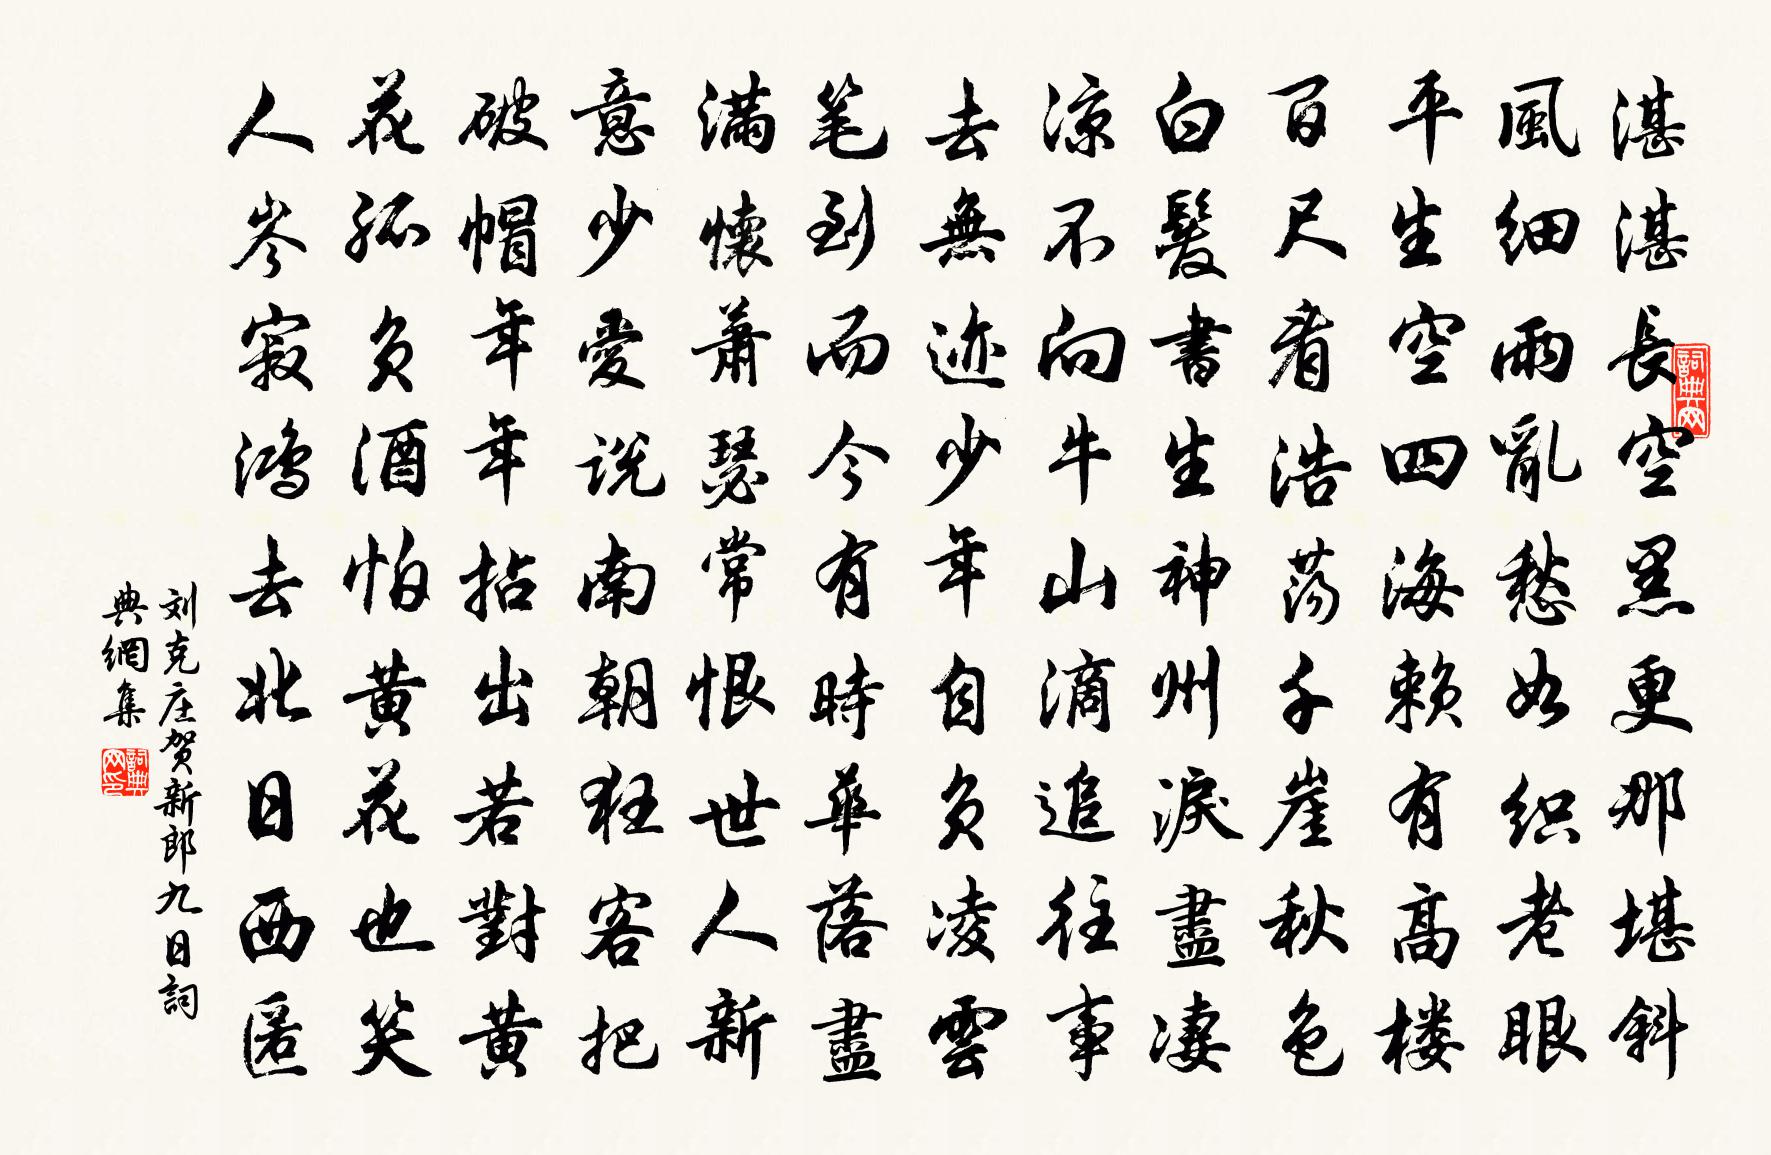 湛湛長空黑更那堪斜
風細雨亂愁如織老眼
平生空四海賴有高楼
百尺看浩荡千崖秋色
白髮書生神州淚盡凄
凉不向牛山滴追往事
去無迹少年自負凌雲
笔到而今有時華落盡
滿懷蕭瑟常恨世人新
意少愛说南朝狂客把
破帽年年拈出若對黄
花孤負酒怕黄花也笑
人岑寂鸿去北日西匿
刘克庄贺新郎九日詞
典網集
詞典网
詞典网印